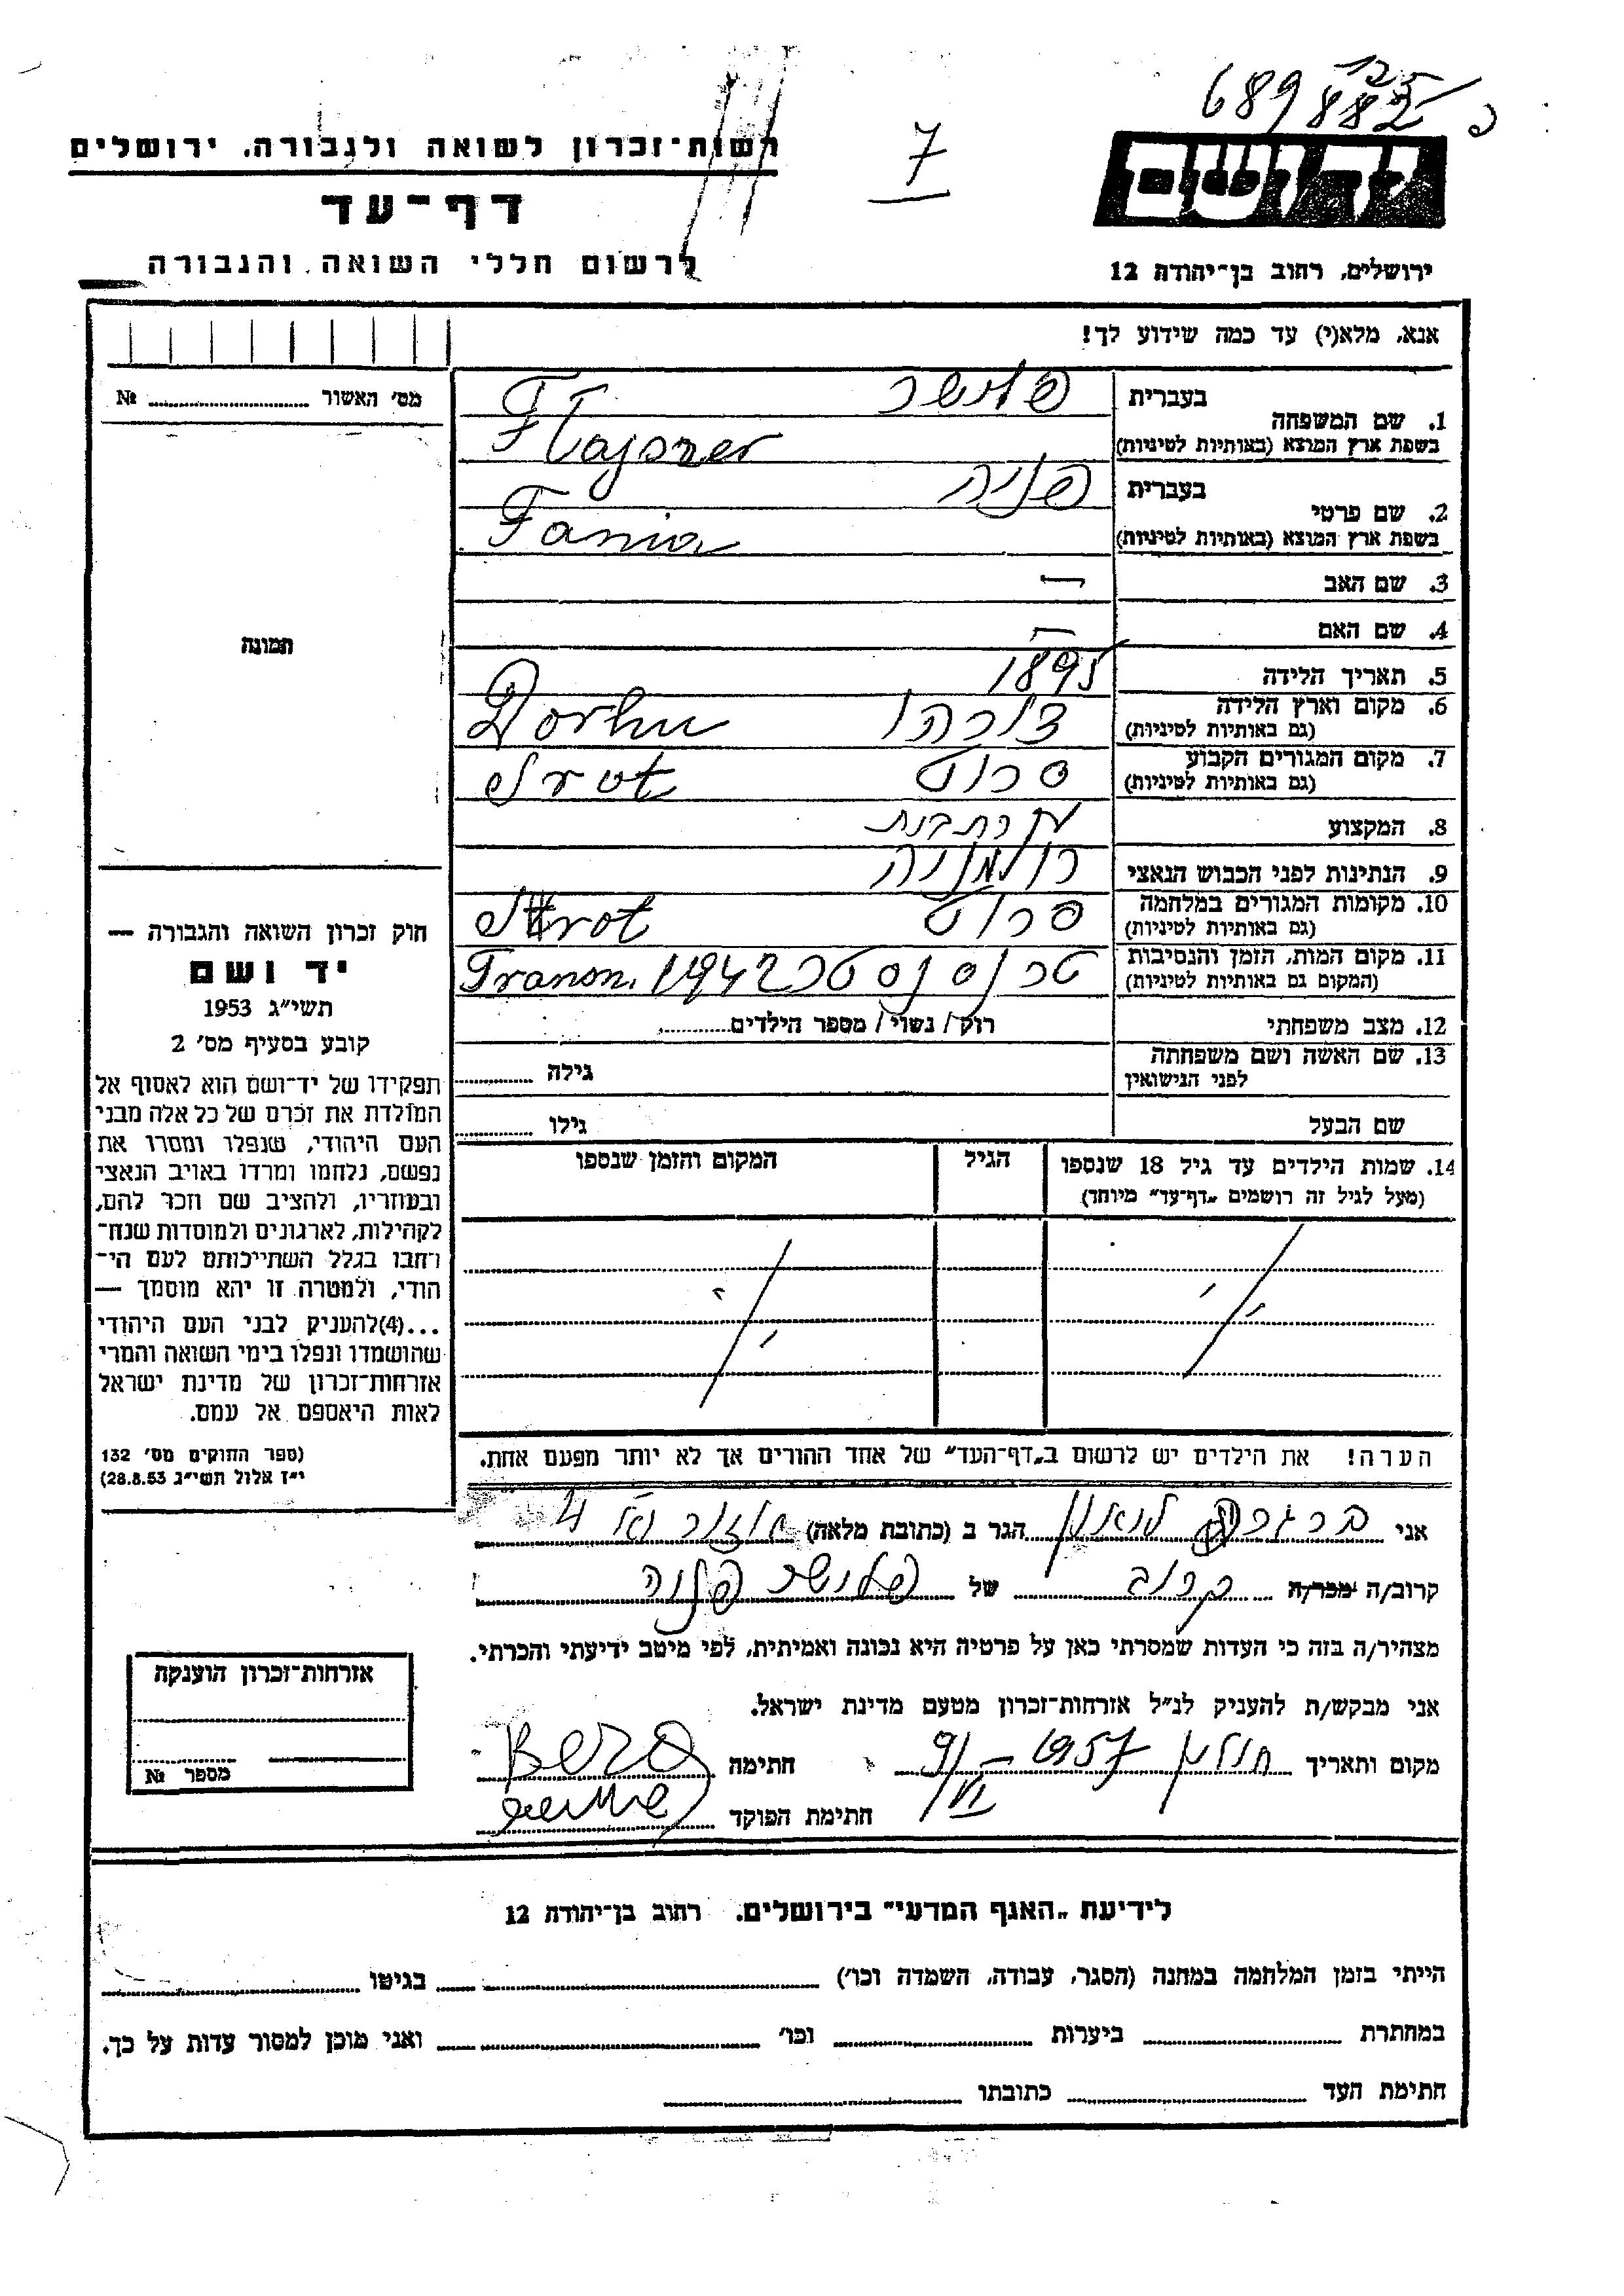 689882
12
7
רשות־זכרון לשואה ולגבורה, ירושלים
דף־עד
לרשום חללי השואה והגבורה
יד ושם
ירושלים, רחוב בן־יהודה 12
אנא, מלא(י) עד כמה שידוע לך!
מס׳ האשור №
תמונה
1. שם המשפחה
בעברית פלישר
בשפת ארץ המוצא (באותיות לטיניות) Flajszer
2. שם פרטי
בעברית פניה
בשפת ארץ המוצא (באותיות לטיניות) Fania
3. שם האב —
4. שם האם —
5. תאריך הלידה 1895
6. מקום וארץ הלידה
(גם באותיות לטיניות) Dorhu
7. מקום המגורים הקבוע סרוט
(גם באותיות לטיניות) Srot
8. המקצוע
9. הנתינות לפני הכבוש הנאצי רומניה
10. מקומות המגורים במלחמה סרוט
(גם באותיות לטיניות) Srot
11. מקום המות, הזמן והנסיבות
(המקום גם באותיות לטיניות) Transn. 1942
12. מצב משפחתי רוק / נשוי / מספר הילדים
13. שם האשה ושם משפחתה
לפני הנישואין גילה
שם הבעל גילו
14. שמות הילדים עד גיל 18 שנספו
(מעל לגיל זה רושמים „דף־עד״ מיוחד)
הגיל
המקום והזמן שנספו
הערה! את הילדים יש לרשום ב„דף־העד״ של אחד ההורים אך לא יותר מפעם אחת.
חוק זכרון השואה והגבורה —
יד ושם
תשי״ג 1953
קובע בסעיף מס׳ 2
תפקידו של יד־ושם הוא לאסוף אל
המולדת את זכרם של כל אלה מבני
העם היהודי, שנפלו ומסרו את
נפשם, נלחמו ומרדו באויב הנאצי
ובעוזריו, ולהציב שם וזכר להם,
לקהילות, לארגונים ולמוסדות שנח־
רחבו בגלל השתייכותם לעם הי־
הודי, ולמטרה זו יהא מוסמך —
...(4)להעניק לבני העם היהודי
שהושמדו ונפלו בימי השואה והמרי
אזרחות־זכרון של מדינת ישראל
לאות היאספם אל עמם.
(ספר החוקים מס׳ 132
י״ז אלול תשי״ג 28.8.53)
אני הגר ב (כתובת מלאה)
קרוב/ה מכר/ה קרוב של פלישר פניה
מצהיר/ה בזה כי העדות שמסרתי כאן על פרטיה היא נכונה ואמיתית, לפי מיטב ידיעתי והכרתי.
אני מבקש/ת להעניק לנ״ל אזרחות־זכרון מטעם מדינת ישראל.
מקום ותאריך חולון 1957 — 9/VI חתימה
חתימת הפוקד
אזרחות־זכרון הוענקה
מספר №
לידיעת „האגף המדעי״ בירושלים, רחוב בן־יהודה 12
הייתי בזמן המלחמה במחנה (הסגר, עבודה, השמדה וכו׳) בגיטו
במחתרת ביערות וכו׳ ואני מוכן למסור עדות על כך.
חתימת העד כתובתו